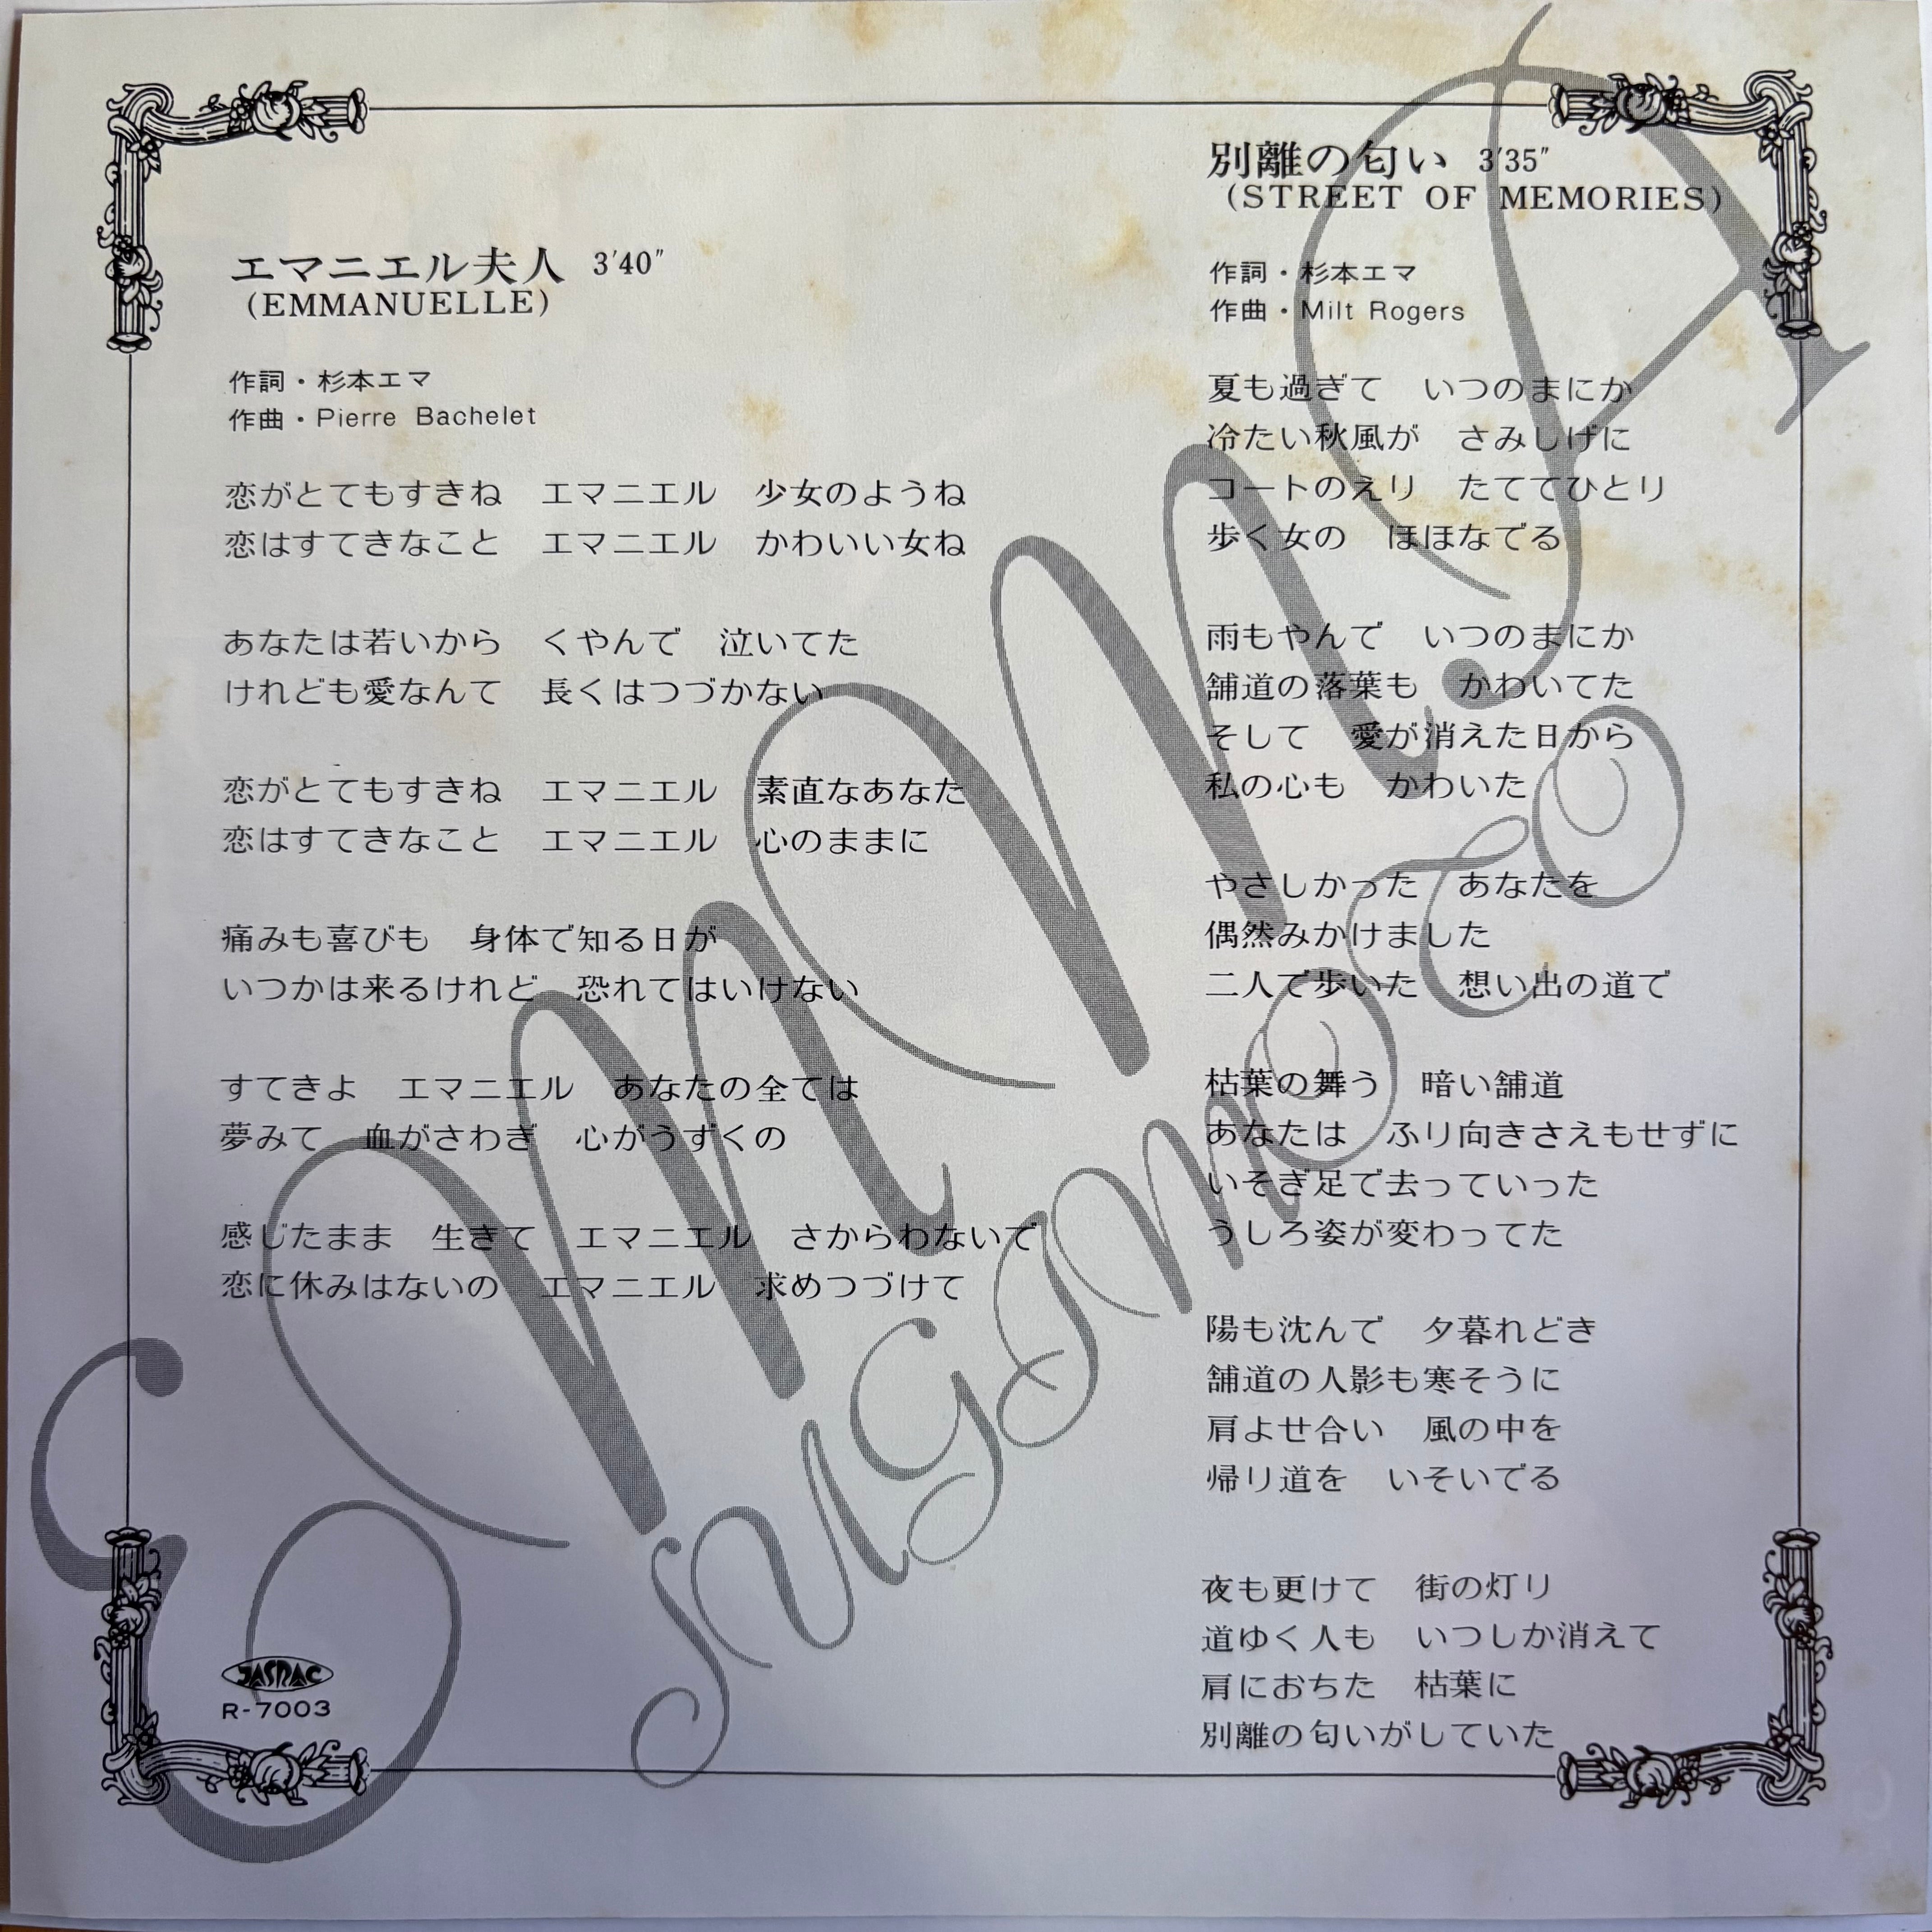 エマニエル夫人 3′40″
(EMMANUELLE)
作詞・杉本エマ
作曲・Pierre Bachelet
恋がとてもすきね　エマニエル　少女のようね
恋はすてきなこと　エマニエル　かわいい女ね
あなたは若いから　くやんで　泣いてた
けれども愛なんて　長くはつづかない
恋がとてもすきね　エマニエル　素直なあなた
恋はすてきなこと　エマニエル　心のままに
痛みも喜びも　身体で知る日が
いつかは来るけれど　恐れてはいけない
すてきよ　エマニエル　あなたの全ては
夢みて　血がさわぎ　心がうずくの
感じたまま　生きて　エマニエル　さからわないで
恋に休みはないの　エマニエル　求めつづけて
JASRAC
R-7003
別離の匂い 3′35″
(STREET OF MEMORIES)
作詞・杉本エマ
作曲・Milt Rogers
夏も過ぎて　いつのまにか
冷たい秋風が　さみしげに
コートのえり　たててひとり
歩く女の　ほほなでる
雨もやんで　いつのまにか
舗道の落葉も　かわいてた
そして　愛が消えた日から
私の心も　かわいた
やさしかった　あなたを
偶然みかけました
二人で歩いた　想い出の道で
枯葉の舞う　暗い舗道
あなたは　ふり向きさえもせずに
いそぎ足で去っていった
うしろ姿が変わってた
陽も沈んで　夕暮れどき
舗道の人影も寒そうに
肩よせ合い　風の中を
帰り道を　いそいでる
夜も更けて　街の灯り
道ゆく人も　いつしか消えて
肩におちた　枯葉に
別離の匂いがしていた
EMMA
SUGIMOTO